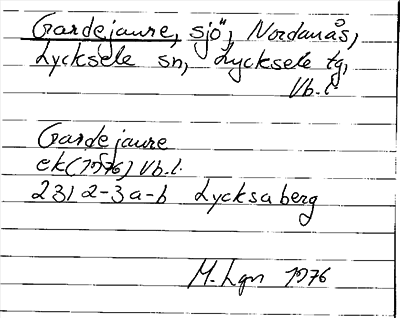 Gardejaure, sjö, Nordanås,
Lycksele sn, Lycksele tg,
Vb.l.
Gardejaure
ek(1976) Vb.l.
231 2-3 a-b Lycksaberg
M. Lgn 1976